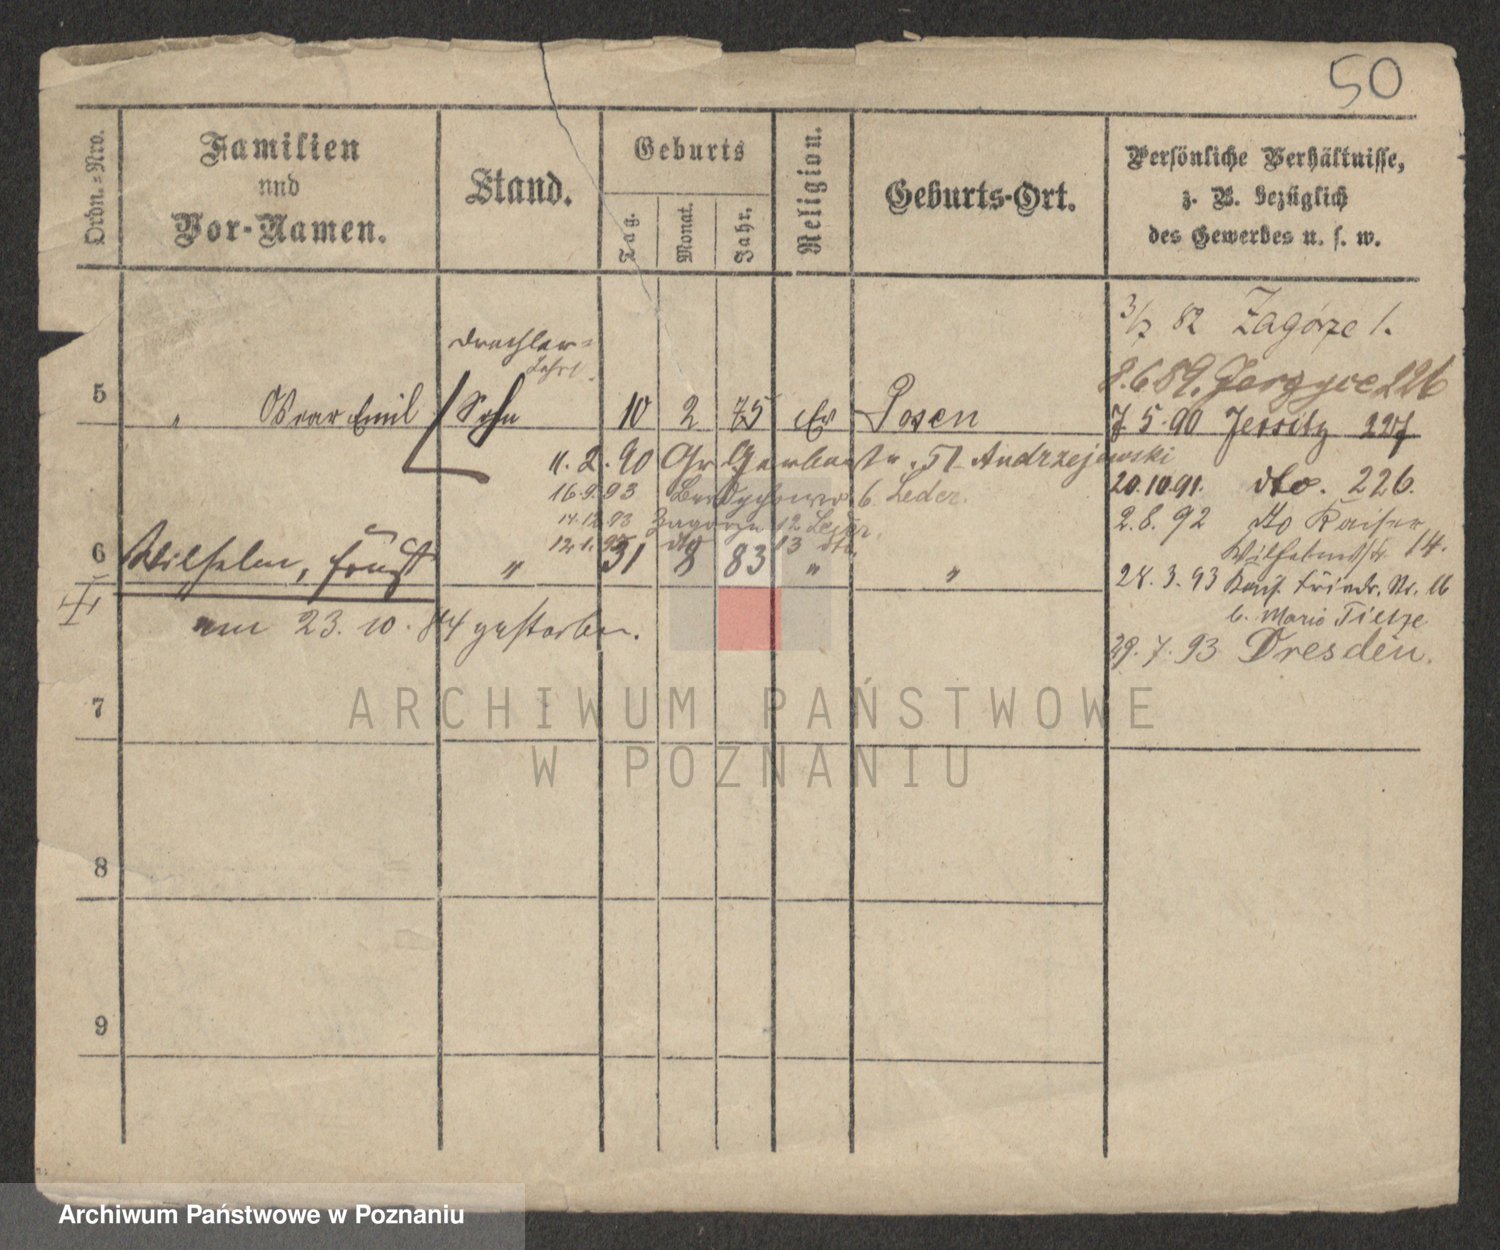 50
Ordn.-Nro.
Familien
und
Vor-Namen.
Stand.
Geburts
Tag.
Monat.
Jahr.
Religion.
Geburts-Ort.
Persönliche Verhältnisse,
z. B. bezüglich
des Gewerbes u. s. w.
3/7 82 Zagórze 1.
8.6.89. Jerzyce 226
5 " Oscar Emil Sohn 10 2 75 ev Posen
7 5.90 Jersitz 227
11.2.90 Gr Gerberstr. 51 Andrzejewski
20.10.91. dto. 226.
16.9.93 6 Leder.
14.12.93 Zagorze 12
2.8.92 dto Kaiser
Wilhelmstr 14.
12.1. dto 13 dto.
6 Wilhelm, Ernst " 31 8 83 " "
28.3.93 Kais. Friedr. Str. 16
b. Mario Tietze
am 23.10.84 gestorben.
29.7.93 Dresden.
7
8
9
ARCHIWUM PAŃSTWOWE
W POZNANIU
Archiwum Państwowe w Poznaniu